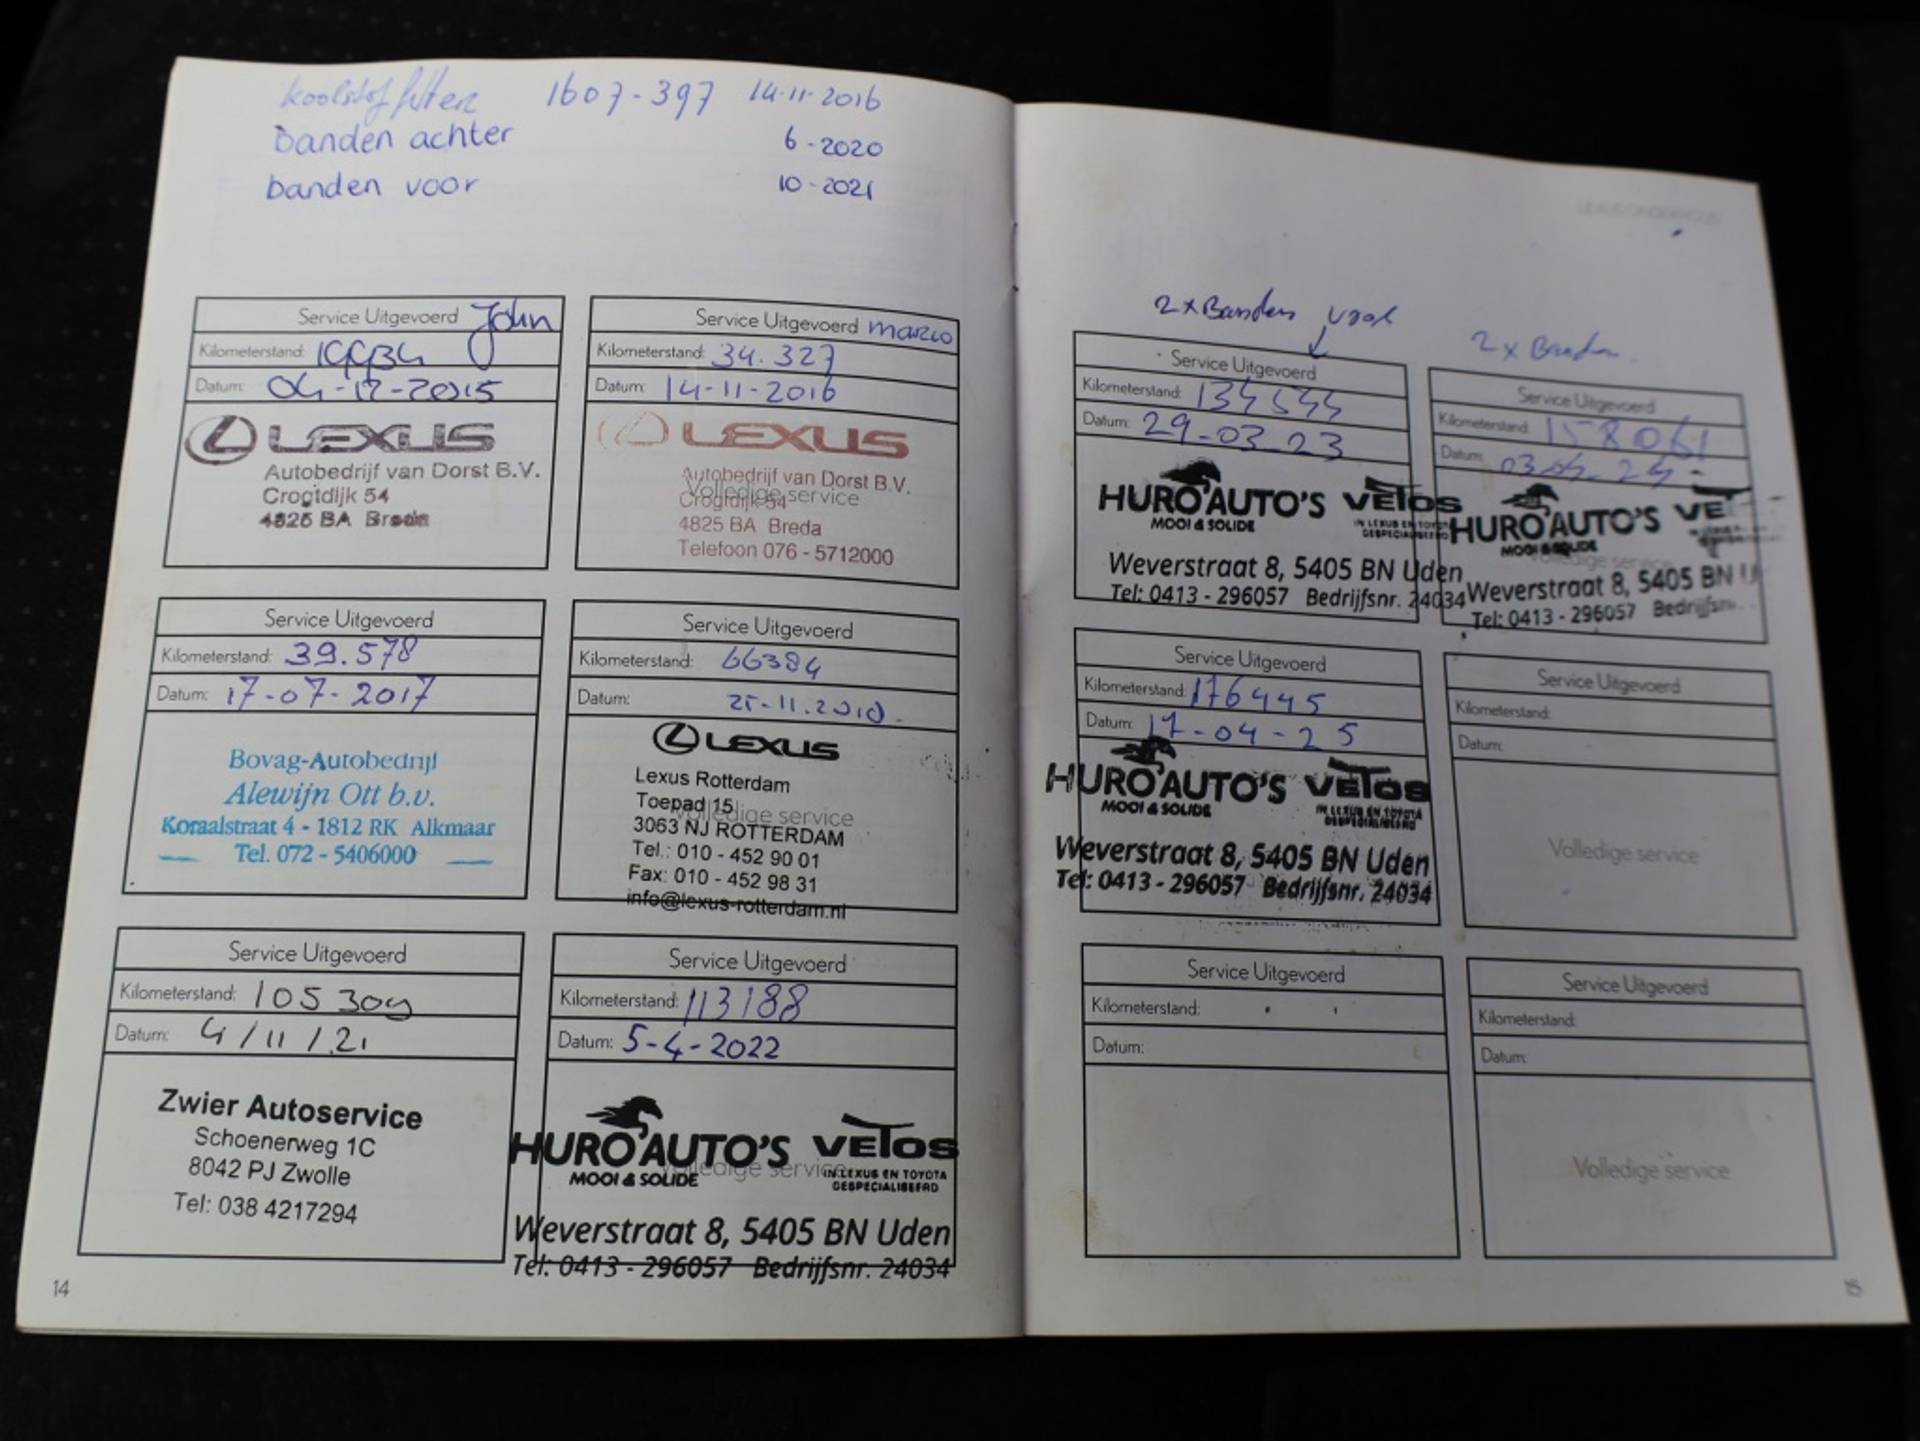 koolstof filter 1607-397 14-11-2016
banden achter 6-2020
banden voor 10-2021
Service Uitgevoerd John
Kilometerstand:
Datum: 04-12-2015
LEXUS
Autobedrijf van Dorst B.V.
Crogtdijk 54
4825 BA Breda
Service Uitgevoerd marco
Kilometerstand: 34.327
Datum: 14-11-2016
LEXUS
Autobedrijf van Dorst B.V.
Volledige service
Crogtdijk 54
4825 BA Breda
Telefoon 076 - 5712000
Service Uitgevoerd
Kilometerstand: 39.578
Datum: 17-07-2017
Bovag-Autobedrijf
Alewijn Ott b.v.
Koraalstraat 4 - 1812 RK Alkmaar
Tel. 072 - 5406000
Service Uitgevoerd
Kilometerstand: 66384
Datum:
LEXUS
Lexus Rotterdam
Toepad 15
Volledige service
3063 NJ ROTTERDAM
Tel.: 010 - 452 90 01
Fax: 010 - 452 98 31
info@lexus-rotterdam.nl
Service Uitgevoerd
Kilometerstand: 105309
Datum: 4/11/21
Zwier Autoservice
Schoenerweg 1C
8042 PJ Zwolle
Tel: 038 4217294
Service Uitgevoerd
Kilometerstand: 113188
Datum: 5-4-2022
HURO AUTO'S VETOS
Volledige service
MOOI & SOLIDE IN LEXUS EN TOYOTA
GESPECIALISEERD
Weverstraat 8, 5405 BN Uden
Tel: 0413 - 296057 Bedrijfsnr. 24034
14
2x Banden voor
Service Uitgevoerd
Kilometerstand: 134544
Datum: 29-03-23
HURO AUTO'S VETOS
MOOI & SOLIDE IN LEXUS EN TOYOTA
GESPECIALISEERD
Weverstraat 8, 5405 BN Uden
Tel: 0413 - 296057 Bedrijfsnr. 24034
2x Banden
Service Uitgevoerd
Kilometerstand: 158061
Datum:
HURO AUTO'S VET
MOOI & SOLIDE
Volledige service
Weverstraat 8, 5405 BN U
Tel: 0413 - 296057 Bedrijfsnr.
Service Uitgevoerd
Kilometerstand: 176445
Datum: 17-04-25
HURO AUTO'S VETOS
MOOI & SOLIDE IN LEXUS EN TOYOTA
GESPECIALISEERD
Weverstraat 8, 5405 BN Uden
Tel: 0413 - 296057 Bedrijfsnr. 24034
Service Uitgevoerd
Kilometerstand:
Datum:
Volledige service
Service Uitgevoerd
Kilometerstand:
Datum:
Service Uitgevoerd
Kilometerstand:
Datum:
Volledige service
15